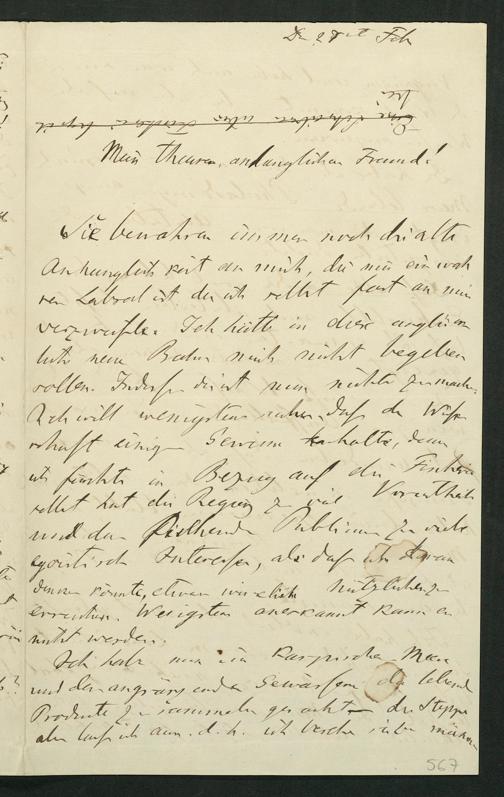 Den 28ten Feb
Mein theurer, anhänglicher Freund!
Sie bewahren immer noch die alte
Anhänglichkeit an mich, die mir ein wah
res Labsal ist, da ich selbst fast an mir
verzweifle. Ich hätte in diese unglück
liche neue Bahn mich nicht begeben
sollen. Indess ist nun nichts zu machen.
Ich will wenigstens suchen, dass die Wiss
schaft einigen Gewinn erhalte, denn
ich fürchte in Bezug auf die Fischerei
selbst hat die Regierung zu viel Vorurtheile
und das fischende Publicum zu viele
egoistische Interessen, als dass ich daran
denken könnte, etwas wirklich nützliches zu
erreichen. Wenigstens anerkannt kann es
nicht werden.
Ich habe nun im Kaspischen Meere
und den angränzenden Gewässern die lebend
Producte zu sammeln gesucht die Steppe
aber d. h. ich
567